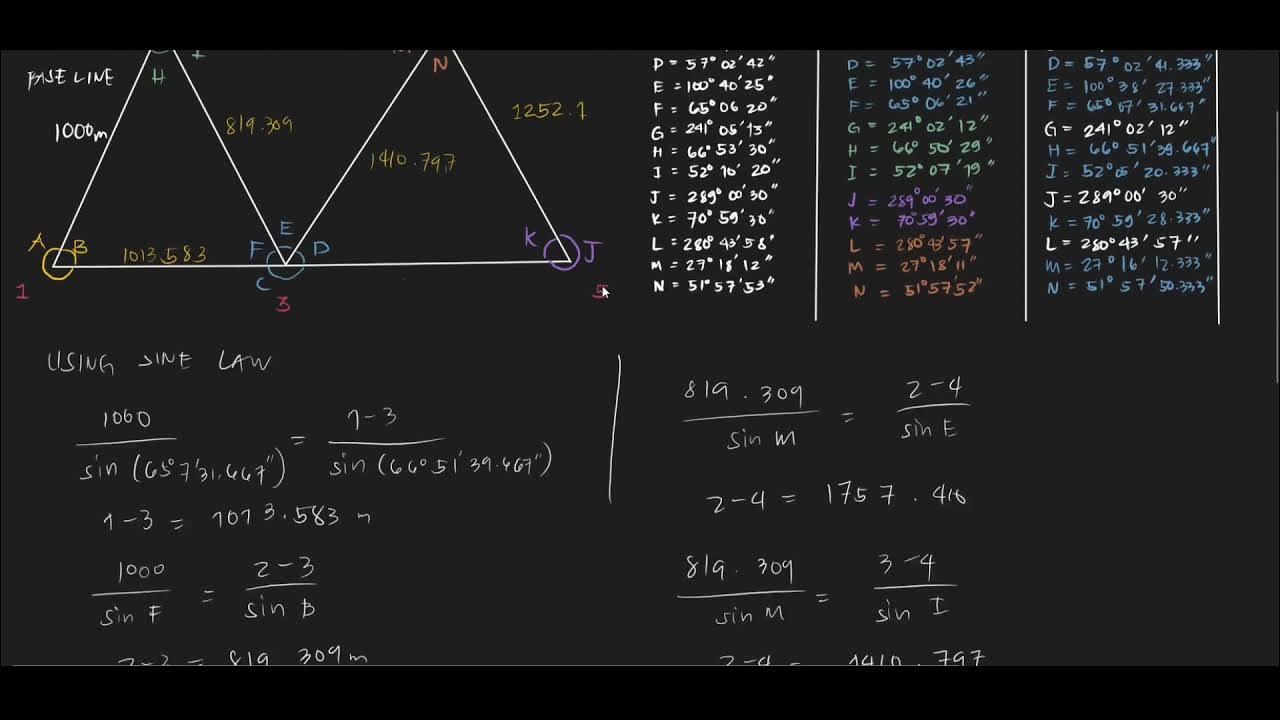 BASE LINE
H
1000m
819.309
1410.797
N
1252.1
A
B
1013.583
F
E
D
C
K
J
1
3
5
D = 57° 02' 42"
E = 100° 40' 25"
F = 65° 06' 20"
G = 241° 05' 13"
H = 66° 53' 30"
I = 52° 10' 20"
J = 289° 00' 30"
K = 70° 59' 30"
L = 280° 43' 58"
M = 27° 18' 12"
N = 51° 57' 53"
D = 57° 02' 43"
E = 100° 40' 26"
F = 65° 06' 21"
G = 241° 02' 12"
H = 66° 50' 29"
I = 52° 07' 19"
J = 289° 00' 30"
K = 70° 59' 30"
L = 280° 43' 57"
M = 27° 18' 11"
N = 51° 57' 52"
D = 57° 02' 41.333"
E = 100° 38' 27.333"
F = 65° 07' 31.667"
G = 241° 02' 12"
H = 66° 51' 39.667"
I = 52° 05' 20.333"
J = 289° 00' 30"
K = 70° 59' 28.333"
L = 280° 43' 57"
M = 27° 16' 12.333"
N = 51° 57' 50.333"
USING SINE LAW
1000 / sin (65° 7' 31.667") = 1-3 / sin (66° 51' 39.667")
1-3 = 1013.583 m
1000 / sin F = 2-3 / sin B
2-3 = 819.309m
819.309 / sin M = 2-4 / sin E
2-4 = 1757.416
819.309 / sin M = 3-4 / sin I
= 1410.797